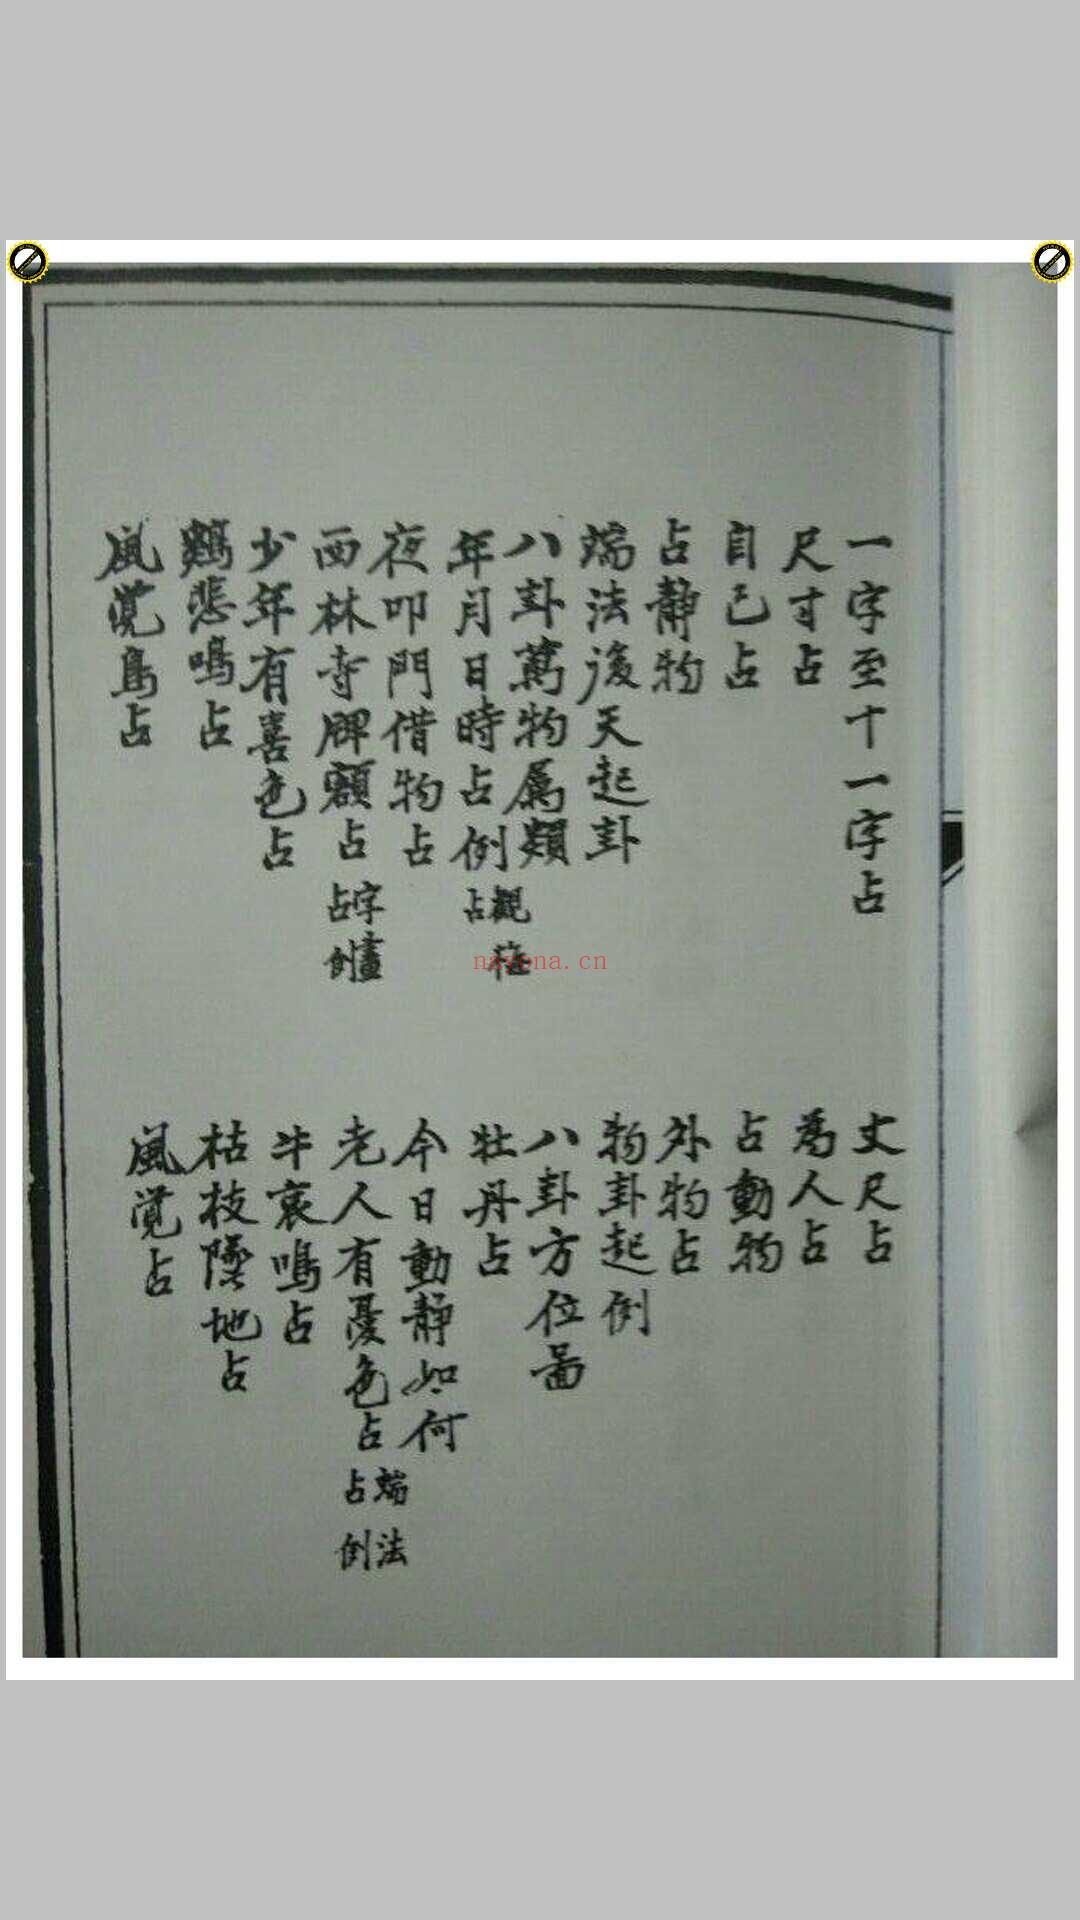 一字至十一字占
丈尺占
尺寸占
為人占
自己占
占動物
占静物
外物占
端法後天起卦
物卦起例
八卦萬物属類
八卦方位畐
年月日時占例 觀梅占
牡丹占
夜叩門借物占
今日動静如何
西林寺牌額占 字畫占例
老人有憂色占 端法占例
少年有喜色占
牛哀鳴占
鷄悲鳴占
枯枝墜地占
風覚鳥占
風覚占
nayona.cn